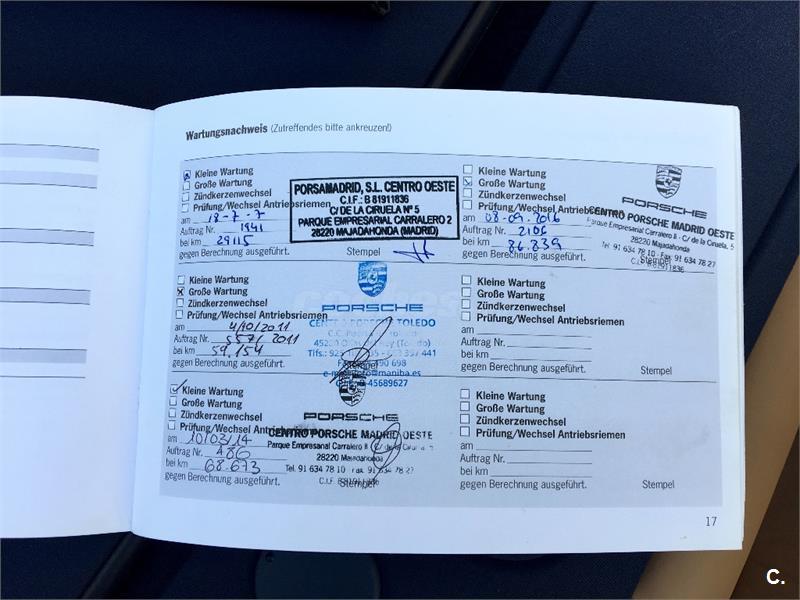 Wartungsnachweis (Zutreffendes bitte ankreuzen!)
Kleine Wartung
Große Wartung
Zündkerzenwechsel
Prüfung/Wechsel Antriebsriemen
am 18-7-7
Auftrag Nr. 1941
bei km 29115
gegen Berechnung ausgeführt. Stempel
PORSAMADRID, S.L. CENTRO OESTE
C.I.F.: B 81911836
C/ DE LA CIRUELA Nº 5
PARQUE EMPRESARIAL CARRALERO 2
28220 MAJADAHONDA (MADRID)
Kleine Wartung
Große Wartung
Zündkerzenwechsel
Prüfung/Wechsel Antriebsriemen
am 08-09-2016
Auftrag Nr. 2106
bei km 86.839
gegen Berechnung ausgeführt. Stempel
PORSCHE
CENTRO PORSCHE MADRID OESTE
Parque Empresarial Carralero II - C/ de la Ciruela, 5
28220 Majadahonda
Tel. 91 634 78 10 - Fax 91 634 78 27
C.I.F. B81911836
Kleine Wartung
Große Wartung
Zündkerzenwechsel
Prüfung/Wechsel Antriebsriemen
am 4/10/2011
Auftrag Nr. 557/2011
bei km 59,154
gegen Berechnung ausgeführt. Stempel
PORSCHE
CENTRO PORSCHE TOLEDO
(Toledo)
Tlfs.: 925
441
690 698
@maniba.es
45689627
Kleine Wartung
Große Wartung
Zündkerzenwechsel
Prüfung/Wechsel Antriebsriemen
am
Auftrag Nr.
bei km
gegen Berechnung ausgeführt. Stempel
Kleine Wartung
Große Wartung
Zündkerzenwechsel
Prüfung/Wechsel Antriebsriemen
am 10/03/14
Auftrag Nr. 486
bei km 68.673
gegen Berechnung ausgeführt. Stempel
PORSCHE
CENTRO PORSCHE MADRID OESTE
Parque Empresarial Carralero II C/ de la Ciruela
28220 Majadahonda
Tel. 91 634 78 10 Fax 91 634 78 27
C.I.F. B81911836
Kleine Wartung
Große Wartung
Zündkerzenwechsel
Prüfung/Wechsel Antriebsriemen
am
Auftrag Nr.
bei km
gegen Berechnung ausgeführt. Stempel
17
C.